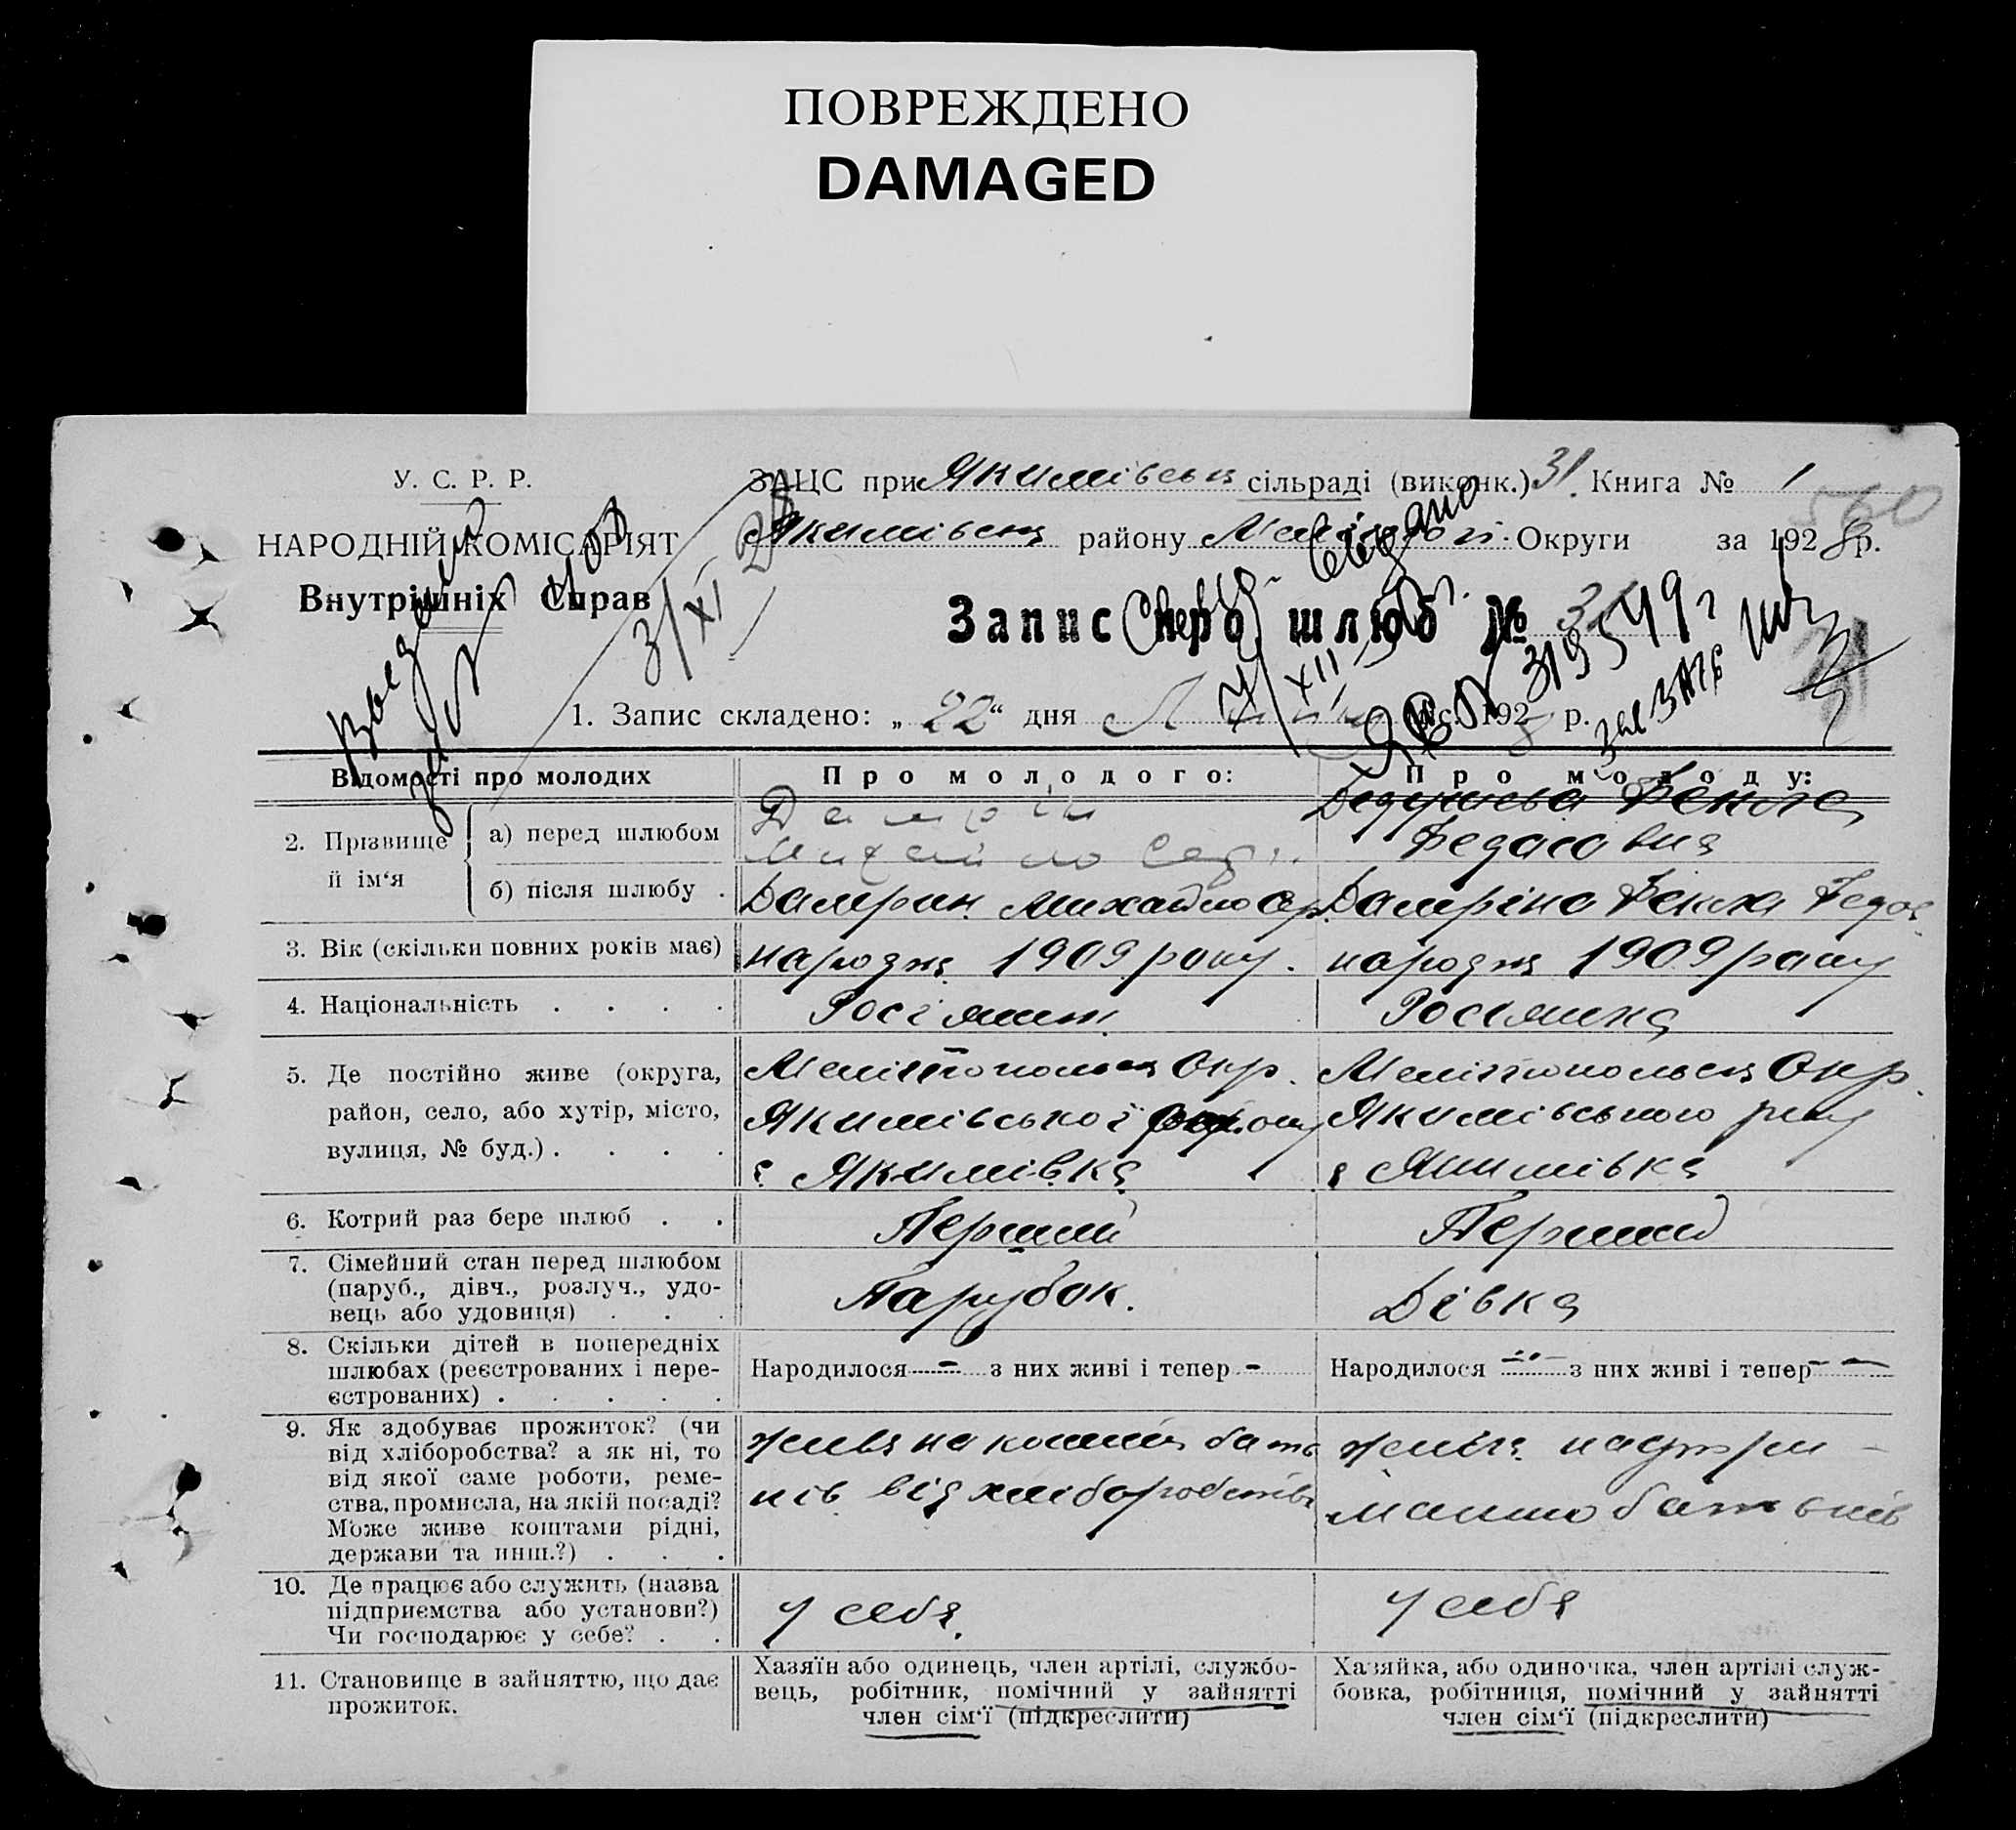 ПОВРЕЖДЕНО
DAMAGED
У. С. Р. Р.
НАРОДНІЙ КОМІСАРІЯТ
Внутрішніх Справ
ЗАЦС при Якимівськ сільраді (виконк.) 31. Книга № 1
560
Якимівськ району Округи за 1928 р.
Запис про шлюб № 31
3/XI
7/XII
319549
1. Запис складено: „22“ дня міс. 1928 р.
Відомості про молодих
Про молодого:
Про молоду:
2. Прізвище й ім‘я
а) перед шлюбом
Дамрін
Михайло
Фекла
Федосовна
б) після шлюбу .
Дамрин Михайло
Дамріна Фекла Федос
3. Вік (скільки повних років має)
народж 1909 року.
народж 1909 року
4. Національність . . . .
Росіянин
Росіянка
5. Де постійно живе (округа, район, село, або хутір, місто, вулиця, № буд.) . . . .
Мелітопольськ Окр.
Якимівської
с Якимівка
Мелітопольськ Окр.
Якимівського р-ну
с Якимівка
6. Котрий раз бере шлюб . .
Перший
Перший
7. Сімейний стан перед шлюбом (паруб., дівч., розлуч., удовець або удовиця) . . .
Парубок.
Дівка
8. Скільки дітей в попередніх шлюбах (реєстрованих і нереєстрованих) . . . . .
Народилося - з них живі і тепер -
Народилося - з них живі і тепер -
9. Як здобуває прожиток? (чи від хліборобства? а як ні, то від якої саме роботи, ремества, промисла, на якій посаді? Може живе коштами рідні, держави та инш.?) . . .
живе на кошти бать
ків від хліборобства
живе на утри-
манню батьків
10. Де працює або служить (назва підприємства або установи?) Чи господарює у себе? . .
у себя.
у себя
11. Становище в зайняттю, що дає прожиток.
Хазяїн або одинець, член артілі, службовець, робітник, помічний у зайнятті член сім‘ї (підкреслити)
Хазяйка, або одиночка, член артілі службовка, робітниця, помічний у зайнятті член сім‘ї (підкреслити)